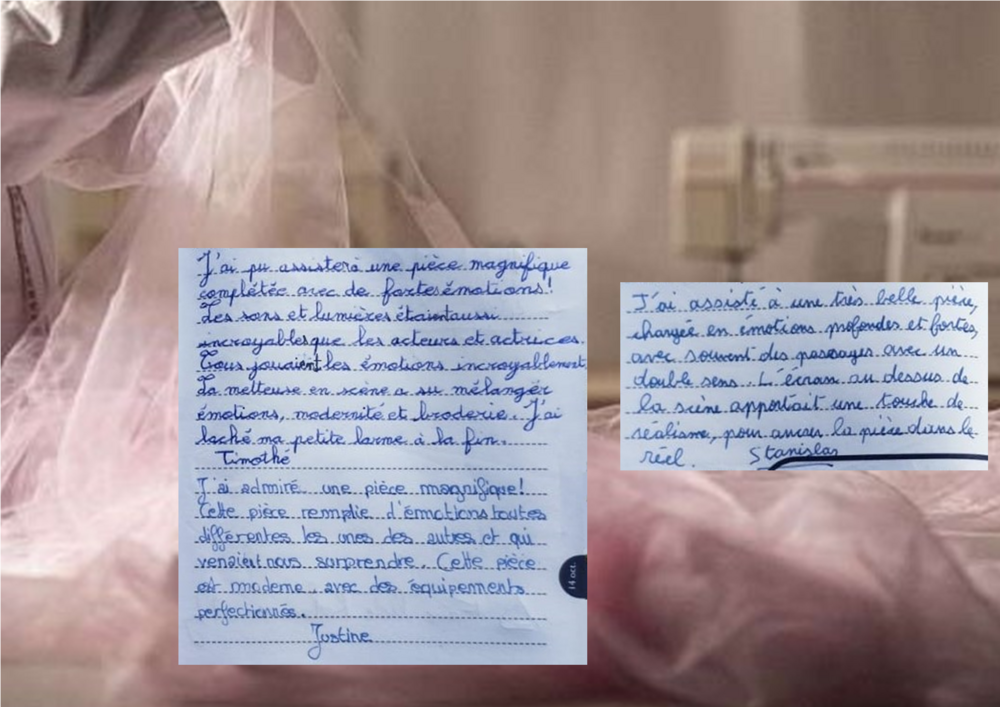 J'ai pu assister à une pièce magnifique
complétée avec de fortes émotions!
Les sons et lumières étaint aussi
incroyables que les acteurs et actrices.
Tous jouaient les émotions incroyablement,
La metteuse en scène a su mélanger
émotions, modernité et broderie. J'ai
laché ma petite larme à la fin.
Timothé
J'ai admiré une pièce magnifique!
Cette pièce remplie d'émotions toutes
différentes les unes des autres et qui
venaient nous surprendre. Cette pièce
est moderne avec des équipements
perfectionnés.
Justine
14 oct.
J'ai assisté à une très belle pièce,
chargée en émotions profondes et fortes,
avec souvent des passages avec un
double sens. L'écran au dessus de
la scène apportait une touche de
réalisme, pour ancrer la pièce dans le
réel. Stanislas